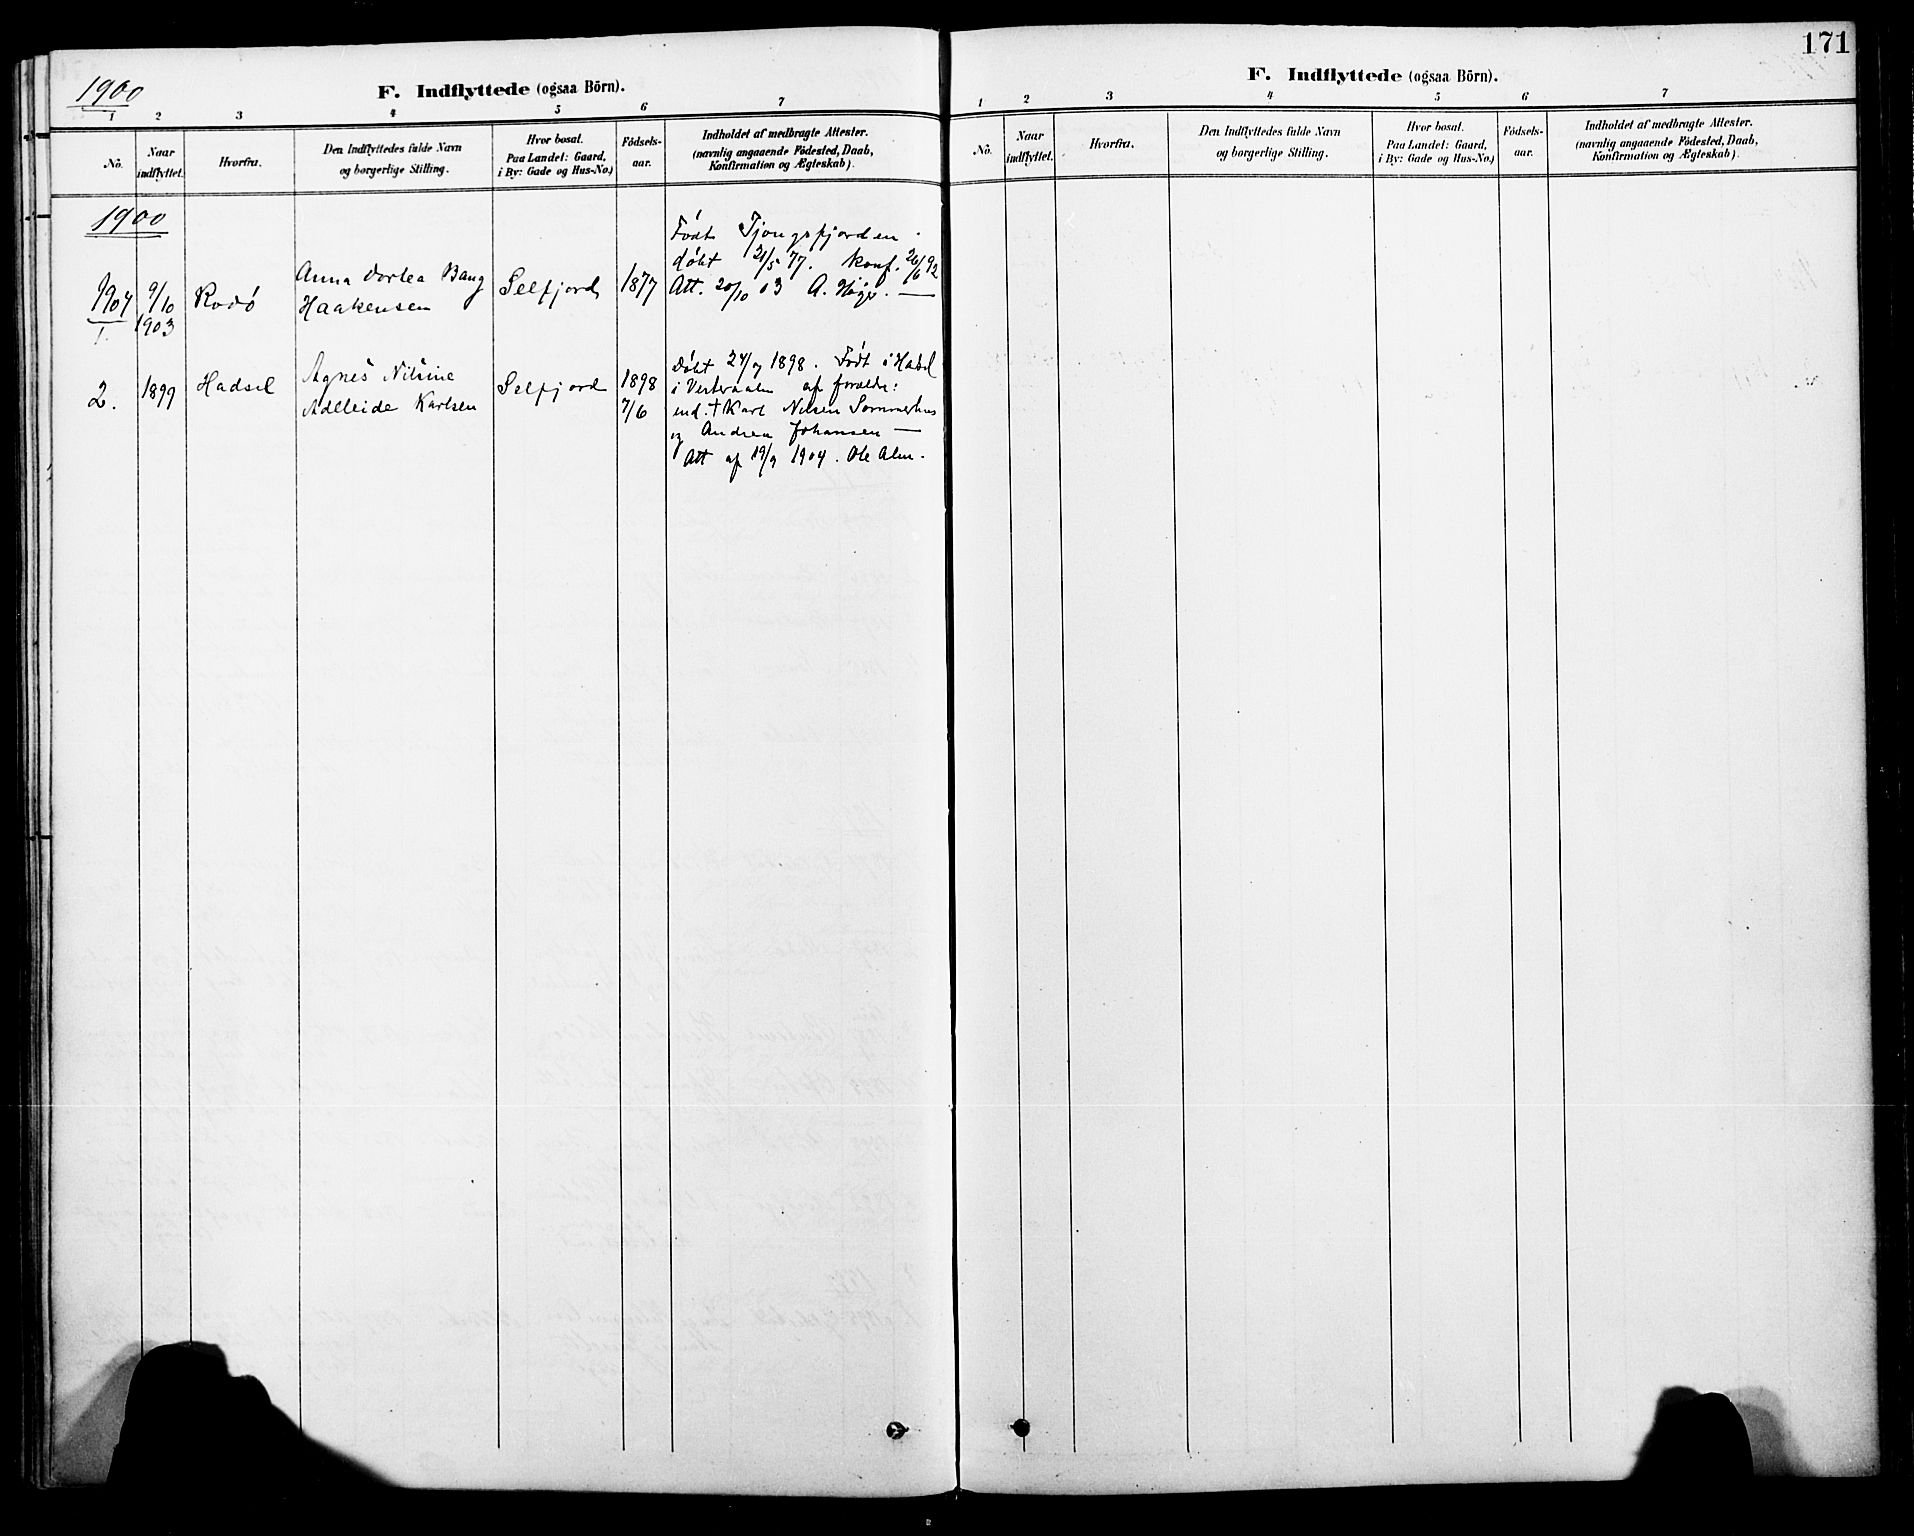 1900
F. Indflyttede (ogsaa Börn).
1 2 3 4 5 6 7
No.
Naar
indflyttet.
Hvorfra.
Den Indflyttedes fulde Navn
og borgerlige Stilling.
Hvor bosat.
Paa Landet: Gaard,
i By: Gade og Hus-No.)
Fødsels-
aar.
Indholdet af medbragte Attester.
(navnlig angaaende Födested, Daab,
Konfirmation og Ægteskab).
1900
1904
1.
9/10
1903
Rodø
Anna Dortea Bang
Haakensen
Selfjord
1877
Født Tjongsfjorden.
døbt 21/5 77. konf. 26/6 92
Att. 20/10 03 A. —
2.
1899
Hadsel
Agnes Nilsine
Adeleide Karlsen
Selfjord
1898
7/6
Døbt 24/7 1898. Født i Hadsel
i Vesteraalen af forældre:
ind. † Karl Nilsen Sommerhus
og Andrea Johansen —
Att af 19/9 1904. Ole Alm.
171
F. Indflyttede (ogsaa Börn).
1 2 3 4 5 6 7
No.
Naar
indflyttet.
Hvorfra.
Den Indflyttedes fulde Navn
og borgerlige Stilling.
Hvor bosat.
Paa Landet: Gaard,
i By: Gade og Hus-No.)
Fødsels-
aar.
Indholdet af medbragte Attester.
(navnlig angaaende Födested, Daab,
Konfirmation og Ægteskab).